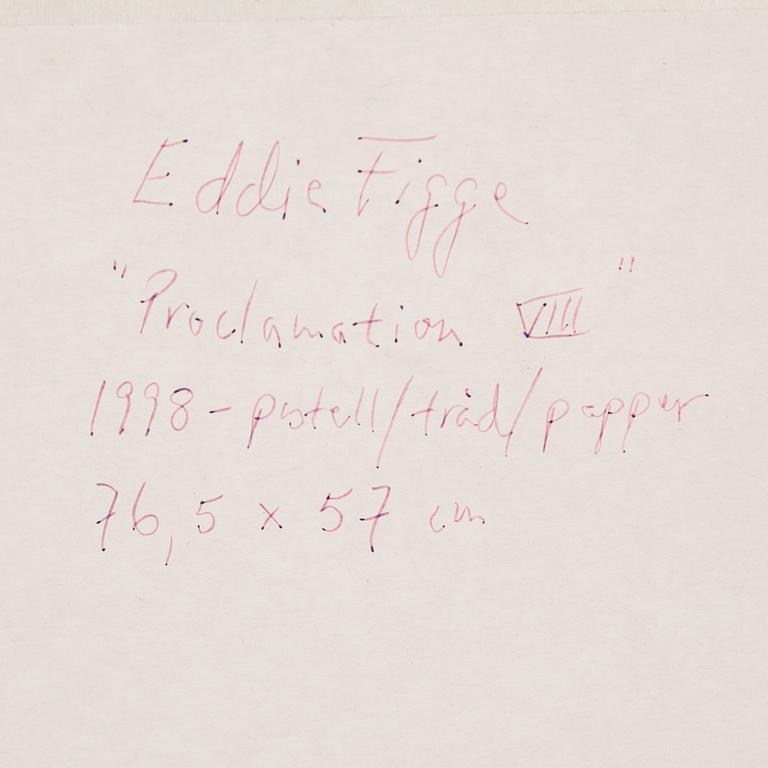 Eddie Figge
"Proclamation VIII"
1998 - pastell/tråd/papper
76,5 x 57 cm